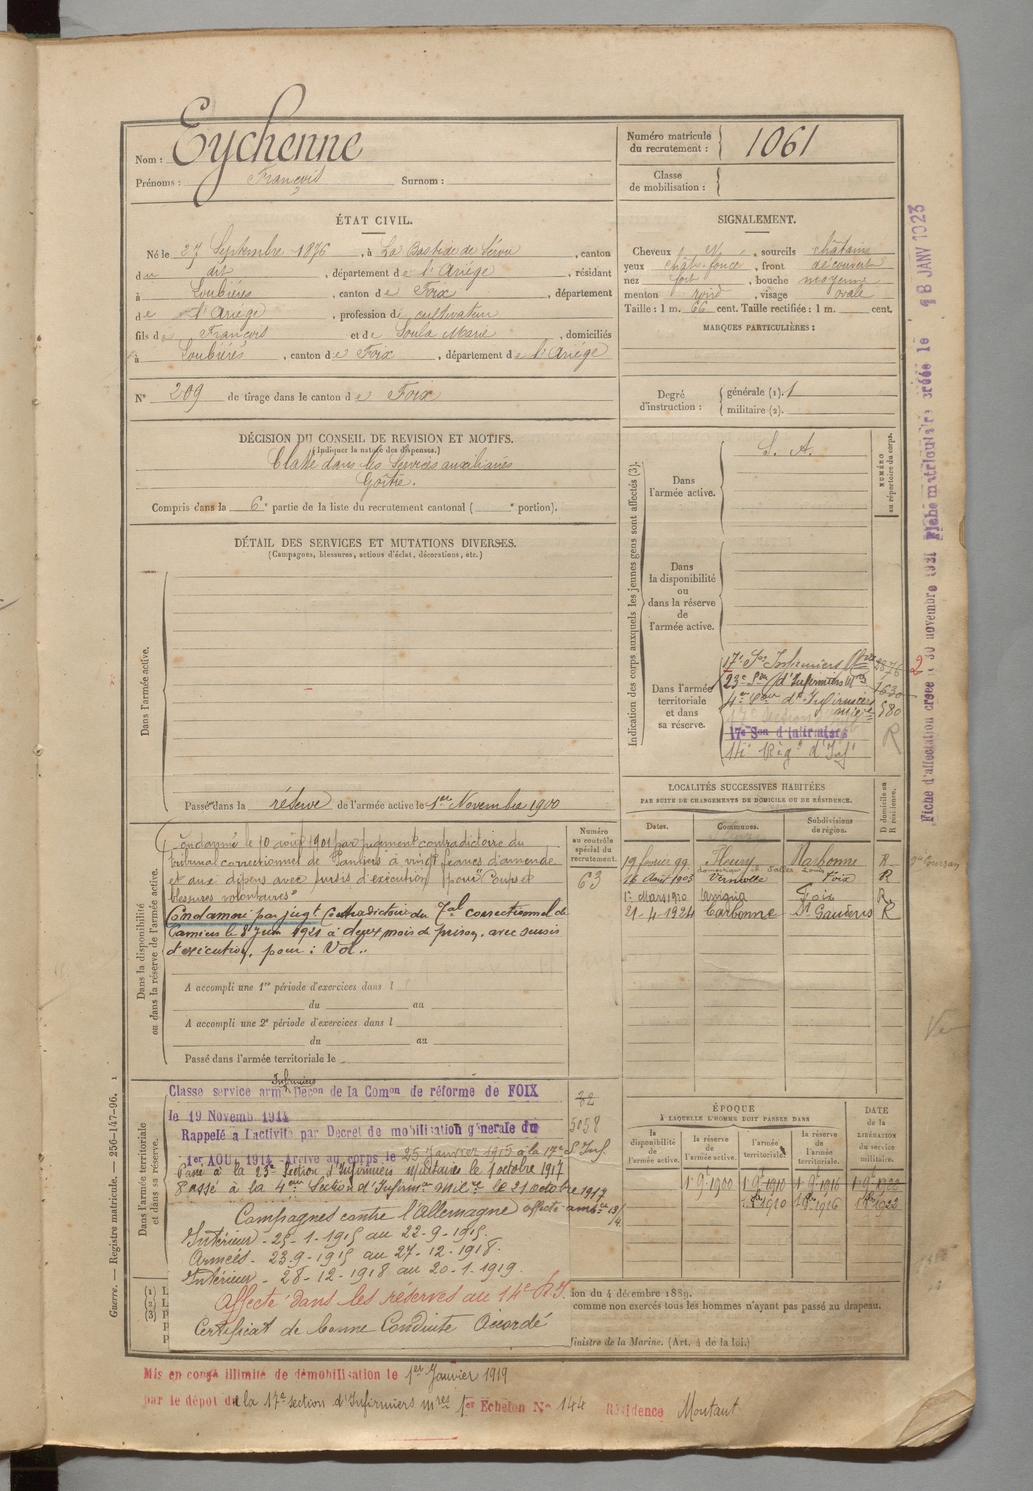 Nom : Eychenne
Prénoms : François Surnom :
Numéro matricule du recrutement : 1061
Classe de mobilisation :
ÉTAT CIVIL.
Né le 27 Septembre 1876, à La Bastide de Sérou, canton
du dit, département de l'Ariège, résidant
à Loubières, canton de Foix, département
de l'Ariège, profession de cultivateur
fils de François et de Soula Marie, domiciliés
à Loubières, canton de Foix, département de l'Ariège
N° 209 de tirage dans le canton de Foix
SIGNALEMENT.
Cheveux et, sourcils châtains
yeux chât. foncé, front découvert
nez fort, bouche moyenne
menton rond, visage ovale
Taille : 1 m. 66 cent. Taille rectifiée : 1 m. cent.
MARQUES PARTICULIÈRES :
Degré d'instruction : générale (1). 1
militaire (2).
DÉCISION DU CONSEIL DE REVISION ET MOTIFS.
(Indiquer la nature des dispenses.)
Classé dans les Services auxiliaires
Goître.
Compris dans la 6e partie de la liste du recrutement cantonal ( e portion).
DÉTAIL DES SERVICES ET MUTATIONS DIVERSES.
(Campagnes, blessures, actions d'éclat, décorations, etc.)
Dans l'armée active.
Passé dans la réserve de l'armée active le 1er Novembre 1900
Indication des corps auxquels les jeunes gens sont affectés (3).
NUMÉRO au répertoire du corps.
Dans l'armée active.
S. A.
Dans la disponibilité ou dans la réserve de l'armée active.
Dans l'armée territoriale et dans sa réserve.
17e Son Infirmiers
23e Son d'Infirmiers Mres 1630
4e Son d'Infirmiers 580
17e Son d'infirmiers
14e Rég. d'Inf. R
LOCALITÉS SUCCESSIVES HABITÉES
PAR SUITE DE CHANGEMENTS DE DOMICILE OU DE RÉSIDENCE.
Dates. Communes. Subdivisions de région. D domicile ou R résidence.
19 février 99 Fleury Narbonne R
16 Août 1903 Verniolle Foix R
1er Mars 1920 Foix R
21-4-1924 Carbonne St Gaudens R
Dans la disponibilité ou dans la réserve de l'armée active.
Numéro au contrôle spécial du recrutement.
63
Condamné le 10 août 1901 par jugement contradictoire du
tribunal correctionnel de Pamiers à vingt francs d'amende
et aux dépens avec sursis d'exécution pour "Coups et
blessures volontaires"
Condamné par jugt contradictoire du Tal correctionnel de
Pamiers le 8 Juin 1921 à deux mois de prison, avec sursis
d'exécution, pour : Vol.
A accompli une 1re période d'exercices dans l
du au
A accompli une 2e période d'exercices dans l
du au
Passé dans l'armée territoriale le
Dans l'armée territoriale et dans sa réserve.
Infirmiers
Classe service armé Décon de la Comon de réforme de FOIX
le 19 Novemb 1914
Rappelé à l'activité par Décret de mobilisation générale du
1er AOUT 1914 Arrivé au corps le 25 Janvier 1915 à la 17e S Inf.
5058
Passé à la 23e Section d'Infirmiers militaires le 1 octobre 1917
Passé à la 4eme Section d'Infirm. Mil. le 21 octobre 1917
Campagnes contre l'Allemagne
Intérieur - 25-1-1915 au 22-9-1915.
Armées - 23-9-1915 au 27-12-1918.
Intérieur - 28-12-1918 au 20-1-1919.
Affecté dans les réserves au 14e R.I.
Certificat de bonne Conduite Accordé
ÉPOQUE
À LAQUELLE L'HOMME DOIT PASSER DANS
la disponibilité de l'armée active. la réserve de l'armée active. l'armée territoriale. la réserve de l'armée territoriale.
DATE de la LIBÉRATION du service militaire.
1 9bre 1900 1 9bre 1910 1 9bre 1916 1 9bre 1922
ion du 4 décembre 1889.
comme non exercés tous les hommes n'ayant pas passé au drapeau.
inistre de la Marine. (Art. 4 de la loi.)
Mis en congé illimité de démobilisation le 1er Janvier 1919
par le dépôt de la 17e section d'Infirmiers mres 1er Echelon N° 144 Résidence Montaut
Guerre. — Registre matricule. — 256-147-96.
Fiche d'affectation créée le 30 novembre 1931 Fiche matriculaire créée le 18 JANV 1923